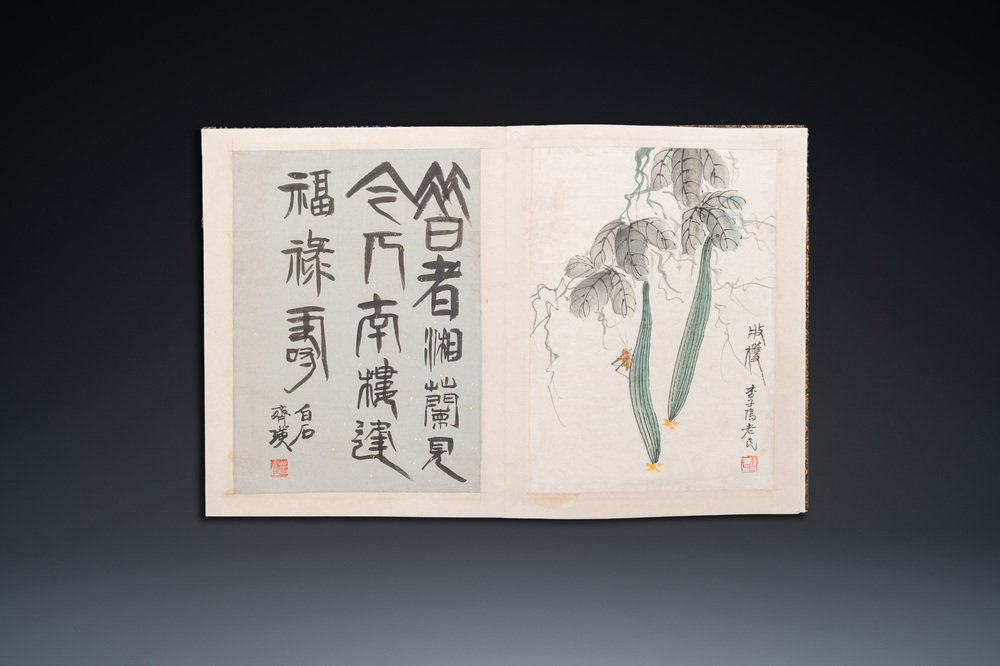 昔者湘蘭見
今乃南樓逢
福祿壽
白石
齊璜
收穫
杏子隖老民